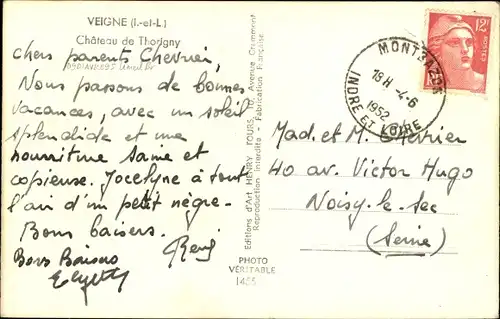 VEIGNE (I.-et-L.)
Château de Thorigny
Chers parents Chevrier,
Nous passons de bonnes
vacances, avec un soleil
splendide et une
nourriture saine et
copieuse. Jocelyne à tout
l'air d'un petit nègre.
Bons baisers.
René
Bons Baisers
Editions d'Art HENRY TOURS, Avenue Grammont
Reproduction Interdite - Fabrication Française
PHOTO
VÉRITABLE
1455
12F
POSTES
MONTBAZON
18H -4-6
1952
INDRE ET LOIRE
Mad. et M. Chevrier
40 av. Victor Hugo
Noisy-le-Sec
(Seine)